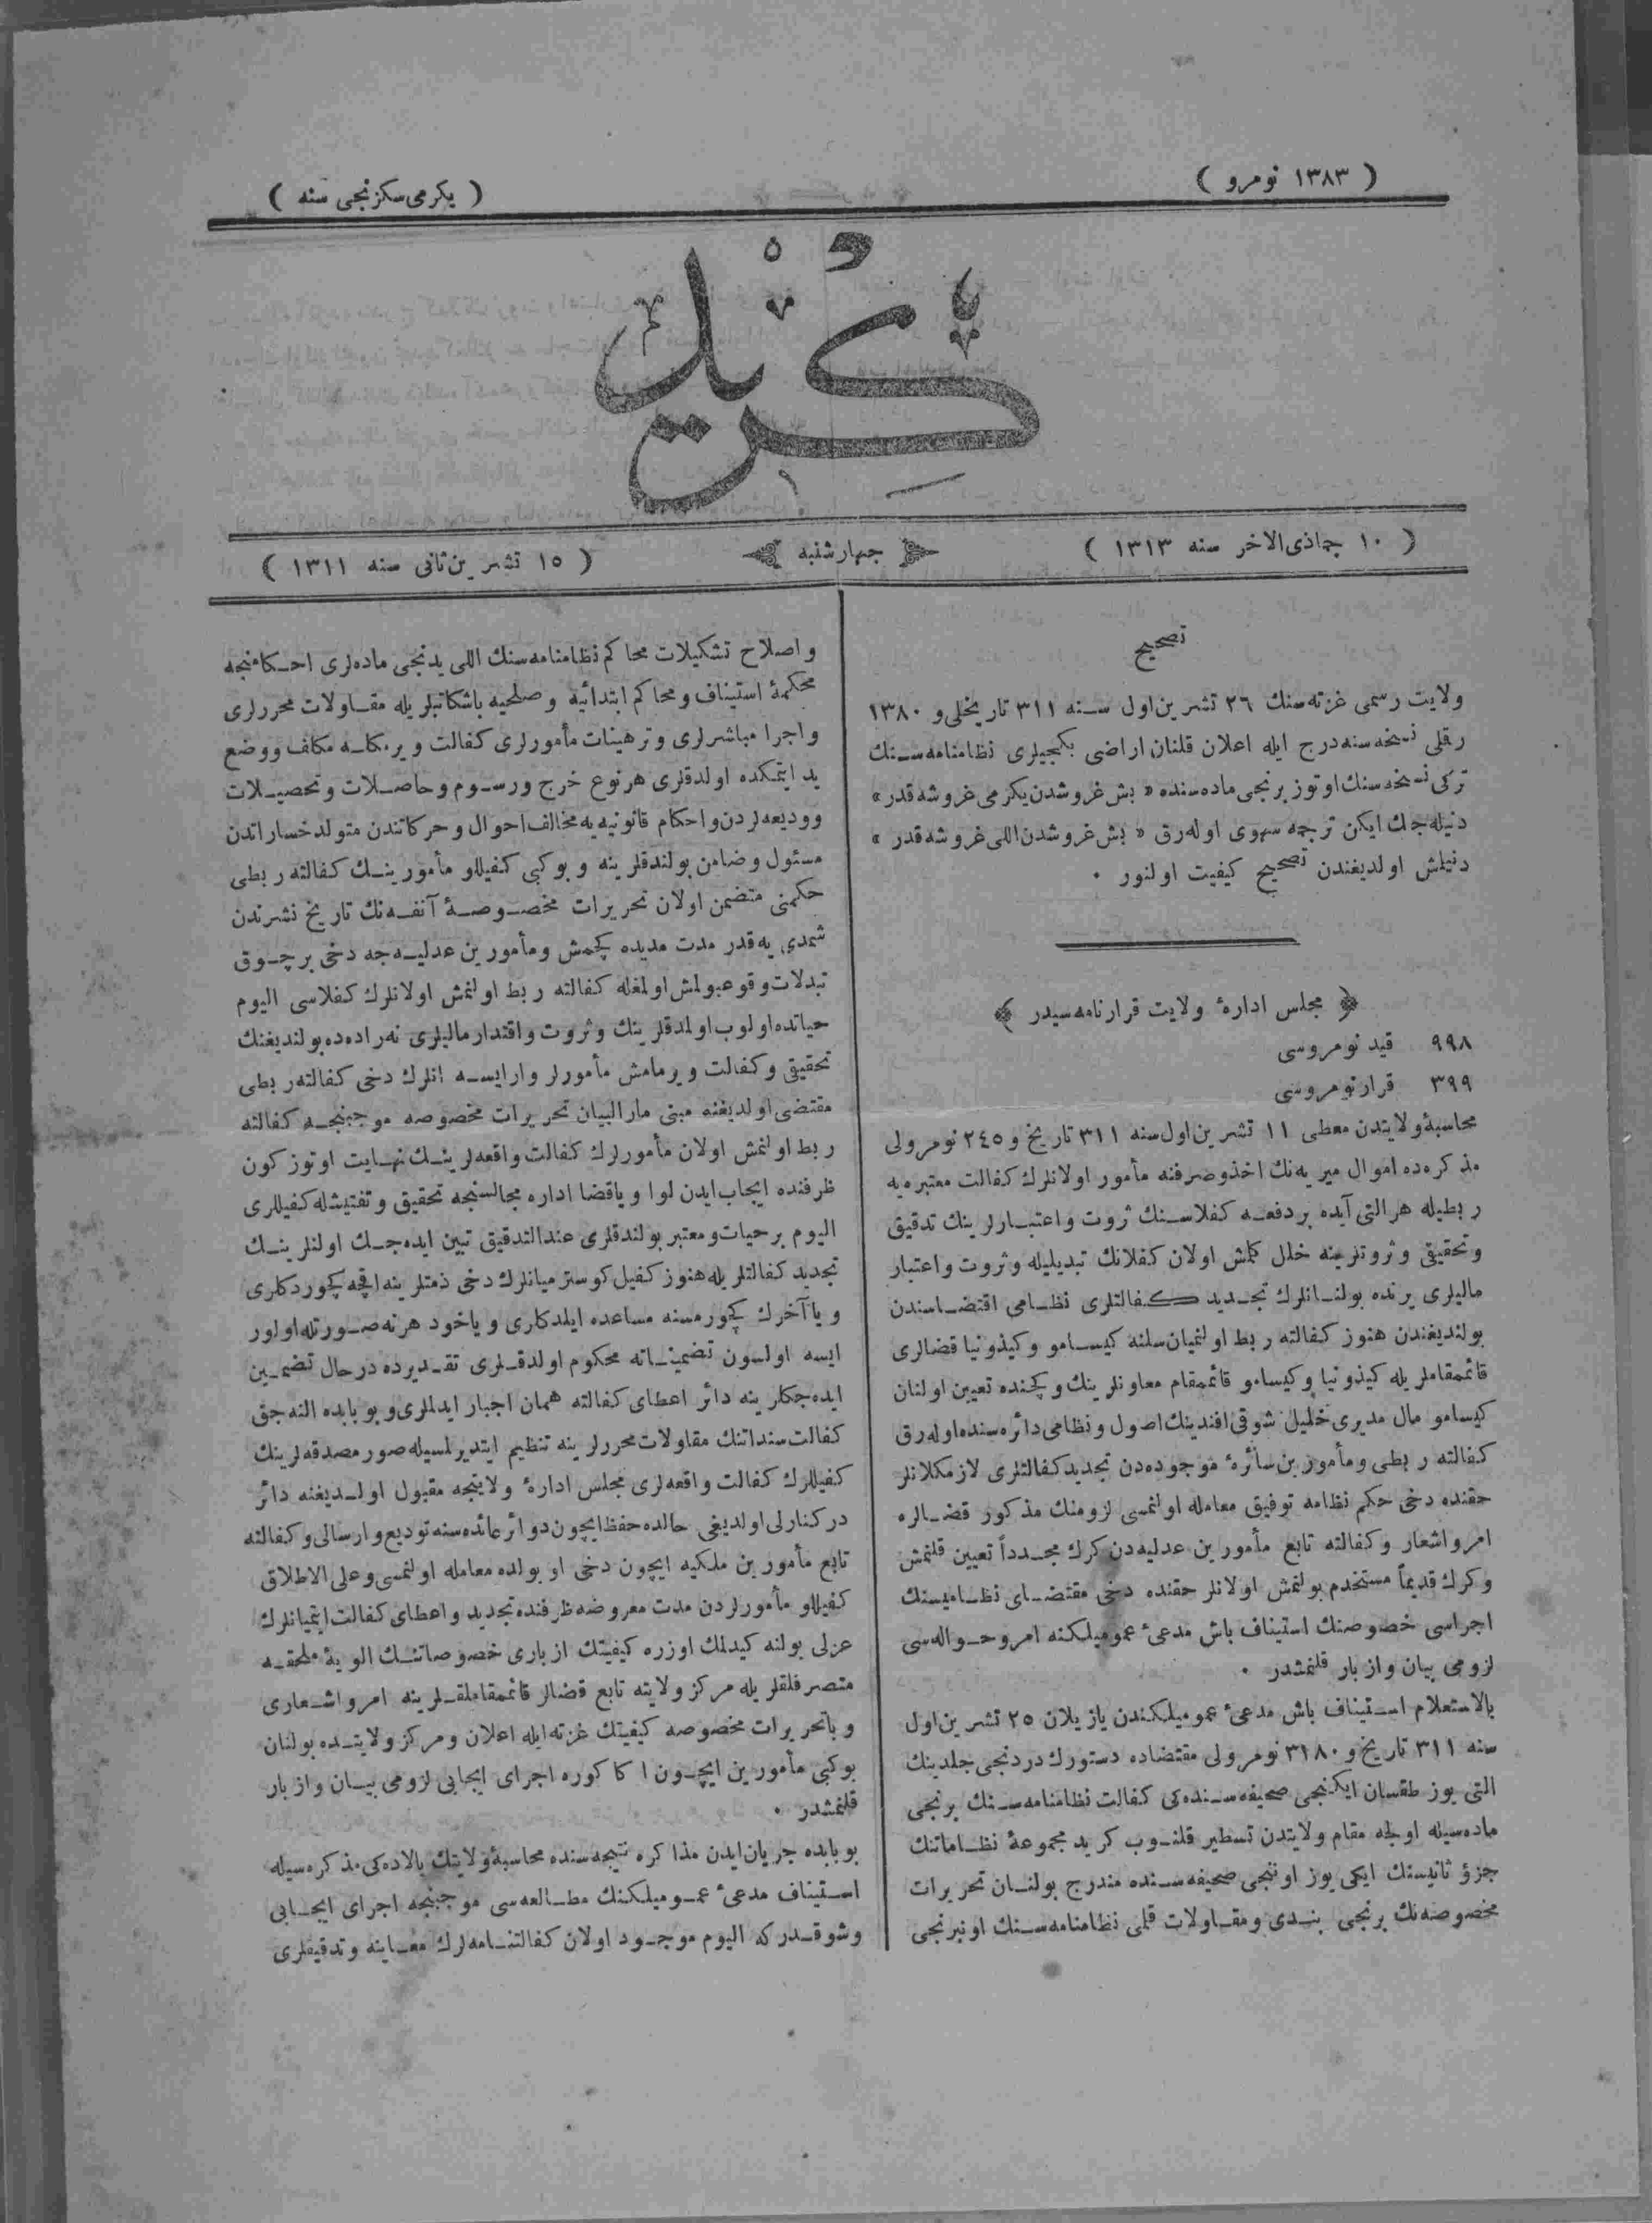 ( ١٣٨٣ نومرو )
( یکرمی‌سکزنجی سنه )
کرید
( ١٠ جماذی‌الاخر سنه ١٣١٣ )
چهارشنبه
( ١٥ تشرین‌ثانی سنه ١٣١١ )
تصحیح
ولایت رسمی غزته‌سنك ٢٦ تشرین‌اول سـنه ٣١١ تاریخلی و ١٣٨٠
رقملی نسخه‌سنه درج ایله اعلان قلنان اراضی بکجیلری نظامنامه‌سـنك
ترکی نسخه‌سنك اوتوز برنجی ماده‌سنده « بش غروشدن یکرمی غروشه قدر »
دنیله‌جك ایکن ترجمه سهوی اوله‌رق « بش غروشدن اللی غروشه قدر »
دنیلمش اولدیغندن تصحیح کیفیت اولنور ٠
﴿ مجلس ادارهٔ ولایت قرارنامه‌سیدر ﴾
٩٩٨ قید نومروسی
٣٩٩ قرار نومروسی
محاسبهٔ ولایتدن معطی ١١ تشرین‌اول سنه ٣١١ تاریخ و ٢٤٥ نومرولی
مذکره‌ده اموال میریه‌نك اخذ و صرفنه مأمور اولانلرك کفالت معتبره‌یه
ربطیله هر التی آیده بر دفعـه کفلاسـنك ثروت و اعتبـارلرینك تدقیق
و تحقیقی و ثروتلرینه خلل کلمش اولان کفلانك تبدیلیله و ثروت و اعتبار
مالیلری یرنده بولنـانلرك تجـدید کفالتلری نظـامی اقتضـاسندن
بولندیغندن هنوز کفالته ربط اولنمیان سلنه کیسـامو و کیذونیا قضالری
قائممقاملریله کیذونیا و کیسامو قائممقام معاونلرینك و کچنده تعیین اولنان
کیسامو مال مدیری خلیل شوقی افندینك اصول و نظامی دائره‌سنده اوله‌رق
کفالته ربطی و مأمورین سائرهٔ موجوده‌دن تجدید کفالتلری لازمکلانلر
حقنده دخی حکم نظامه توفیق معامله اولنمسی لزومنك مذکور قضـالره
امر و اشعار و کفالته تابع مأمورین عدلیه‌دن کرك مجـدداً تعیین قلنمش
و کرك قدیماً مستخدم بولنمش اولانلر حقنده دخی مقتضـای نظـامیسنك
اجراسی خصوصنك استیناف باش مدعیٔ عمومیلکنه امر و حـواله‌سی
لزومی بیان و ازبار قلنمشدر ٠
بالاستعلام اسـتیناف باش مدعیٔ عمومیلکندن یازیلان ٢٥ تشرین‌اول
سنه ٣١١ تاریخ و ٣١٨٠ نومرولی مقتضاده دستورك دردنجی جلدینك
التی یوز طقسان ایکنجی صحیفه‌سـنده‌کی کفالت نظامنامه‌سـنك برنجی
ماده‌سیله اولجه مقام ولایتدن تسطیر قلنـوب کرید مجموعهٔ نظـاماتنك
جزؤ ثانیسنك ایکی یوز اوننجی صحیفه‌سـنده مندرج بولنـان تحریرات
مخصوصه‌نك برنجی بنـدی و مقـاولات قلمی نظامنامه‌سـنك اونبرنجی
و اصلاح تشکیلات محاکم نظامنامه‌سنك اللی یدنجی ماده‌لری احـکامنجه
محکمهٔ استیناف و محاکم ابتدائیه و صلحیه باشکاتبلریله مقـاولات محررلری
و اجرا مباشرلری و ترهینات مأمورلری کفالت ویرمکـه مکلف و وضع
ید ایتمکده اولدقلری هر نوع خرج و رسـوم و حاصـلات و تحصیـلات
و ودیعه‌لردن و احکام قانونیه‌یه مخالف احوال و حرکاتندن متولد خساراتدن
مسئول و ضامن بولندقلرینه و بو کبی کفیللو مأمورینـك کفالته ربطی
حکمنی متضمن اولان تحریرات مخصـوصـهٔ آنفـه‌نك تاریخ نشرندن
شمدی‌یه قدر مدت مدیده کچمش و مأمورین عدلیـه‌جه دخی بر چـوق
تبدلات وقوعبولمش اولمغله کفالته ربط اولنمش اولانلرك کفلاسی الیوم
حیاتده اولوب اولمدقلرینك و ثروت و اقتدار مالیلری نه راده‌ده بولندیغنك
تحقیقی و کفالت ویرمامش مأمورلر وارایسـه انلرك دخی کفالته ربطی
مقتضی اولدیغنه مبنی مارالبیان تحریرات مخصوصه موجبنجـه کفالته
ربط اولنمش اولان مأمورلرك کفالت واقعه‌لرینـك نهـایت اوتوز کون
ظرفنده ایجاب ایدن لوا و یا قضا اداره مجالسنجه تحقیق و تفتیشله کفیللری
الیوم بر حیات و معتبر بولندقلری عندالتدقیق تبین ایده‌جـك اولنلرینـك
تجدید کفالتلریله هنوز کفیل کوسترمیانلرك دخی ذمتلرینه اقچه کچوردکلری
و یا آخرك کچورمسنه مساعده ایلدکلری و یاخود هر نه صـورتله اولور
ایسه اولسون تضمینـاته محکوم اولدقـلری تقـدیرده در حال تضمـین
ایده‌جکلرینه دائر اعطای کفالته همان اجبار ایدلملری و بو بابده النه‌جق
کفالت سنداتنك مقاولات محررلرینه تنظیم ایتدیرلمسیله صور مصدقه‌لرینك
کفیللرك کفالت واقعه‌لری مجلس ادارهٔ ولایتجه مقبول اولـدیغنه دائر
درکنارلی اولدیغی حالده حفظ ایچون دوائر عائده‌سنه تودیع و ارسالی و کفالته
تابع مأمورین ملکیه ایچون دخی او یولده معامله اولنمسی و علی الاطلاق
کفیللو مأمورلردن مدت معروضه ظرفنده تجدید و اعطای کفالت ایتمیانلرك
عزلی یولنه کیدلمك اوزره کیفیتك ازباری خصوصاتنـك الویهٔ ملحقـه
متصرفلقلریله مرکز ولایته تابع قضالر قائممقاملقـلرینه امر و اشـعاری
و باتحریرات مخصوصه کیفیتك غزته ایله اعلان و مرکز ولایتـده بولنان
بو کبی مأمورین ایچـون اکا کوره اجرای ایجابی لزومی بیـان و ازبار
قلنمشدر ٠
بو بابده جریان ایدن مذاکره نتیجه‌سنده محاسبهٔ ولایتك بالاده‌کی مذکره‌سیله
اسـتیناف مدعیٔ عمـومیلکنك مطـالعه‌سی موجبنجه اجرای ایجـابی
و شو قـدر که الیوم موجـود اولان کفالتنـامه‌لرك معـاینه و تدقیقلری